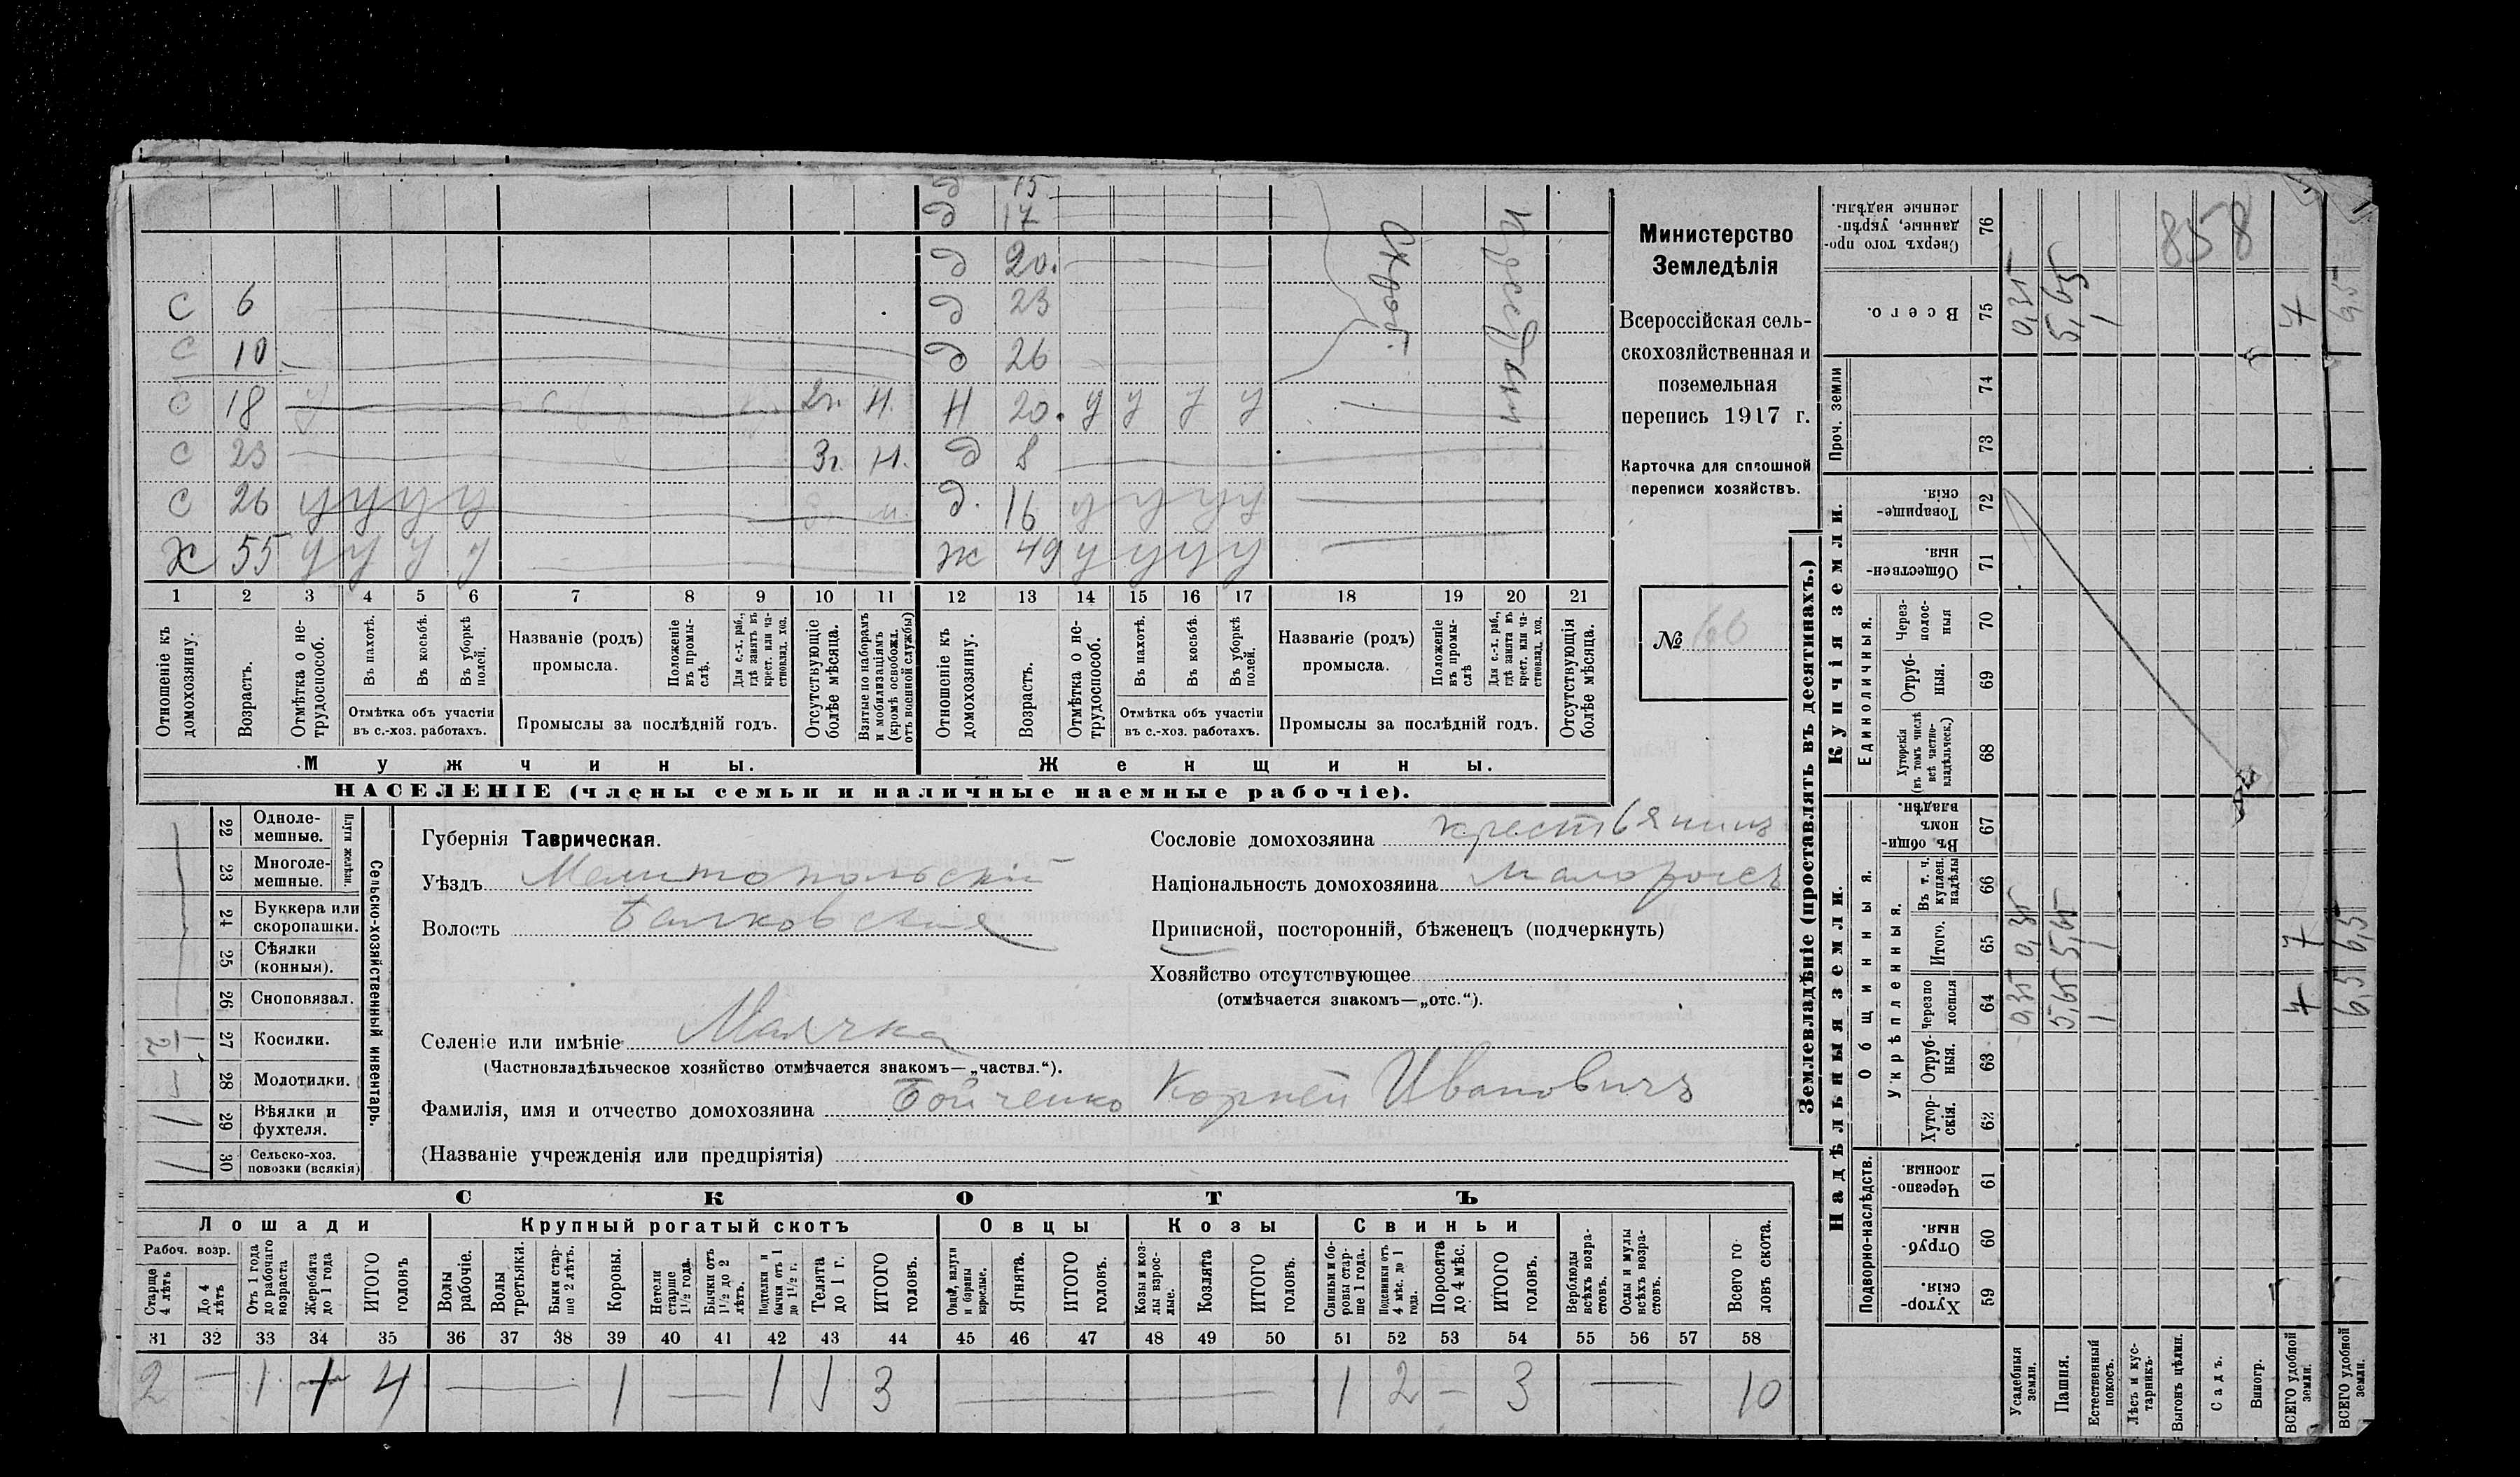 Министерство
Земледѣлія
Всероссійская сель-
скохозяйственная и
поземельная
перепись 1917 г.
Карточка для сплошной
переписи хозяйствъ.
№ 66
д 15
д 17
д 20.
С 6 д 23
С 10 д 26
С 18 2г. Н. Н 20. у у у у
С 23 3г. Н. д 8
С 26 у у у у д. 16 у у у у
Х 55 у у у у ж 49 у у у у
1 2 3 4 5 6 7 8 9 10 11 12 13 14 15 16 17 18 19 20 21
Отношеніе къ домохозяину.
Возрастъ.
Отмѣтка о не-трудоспособ.
Въ пахотѣ.
Въ косьбѣ.
Въ уборкѣ полей.
Отмѣтка объ участіи
въ с.-хоз. работахъ.
Названіе (родъ)
промысла.
Положеніе въ промы-слѣ.
Для с.-х., раб., гдѣ занятъ въ крест. или ча-стновлад. хоз.
Промыслы за послѣдній годъ.
Отсутствующіе болѣе мѣсяца.
Взятые по наборамъ и мобилизаціямъ (кромѣ освобожд. отъ военной службы)
Отношеніе къ домохозяину.
Возрастъ.
Отмѣтка о не-трудоспособ.
Въ пахотѣ.
Въ косьбѣ.
Въ уборкѣ полей.
Отмѣтка объ участіи
въ с.-хоз. работахъ.
Названіе (родъ)
промысла.
Положеніе въ промы-слѣ
Для с.-х. раб., гдѣ занята въ крест. или ча-стновлад. хоз.
Промыслы за послѣдній годъ.
Отсутствующія болѣе мѣсяца.
Мужчины.
Женщины.
НАСЕЛЕНІЕ (члены семьи и наличные наемные рабочіе).
22 Одноле-мешные.
23 Многоле-мешные.
Плуги желѣзн.
24 Буккера или скоропашки.
25 Сѣялки (конныя).
26 Сноповязал.
27 Косилки.
28 Молотилки.
29 Вѣялки и фухтеля.
30 Сельско-хоз. повозки (всякія)
Сельско-хозяйственный инвентарь.
Губернія Таврическая.
Уѣздъ Мелитопольскій
Волость Балковская
Селеніе или имѣніе Маячка
(Частновладѣльческое хозяйство отмѣчается знакомъ—„частвл.“).
Фамилія, имя и отчество домохозяина Бойченко Корней Ивановичъ
(Названіе учрежденія или предпріятія)
Сословіе домохозяина крестьянинъ
Національность домохозяина малороссъ
Приписной, посторонній, бѣженецъ (подчеркнуть)
Хозяйство отсутствующее
(отмѣчается знакомъ—„отс.“).
СКОТЪ
Лошади
Крупный рогатый скотъ
Овцы
Козы
Свиньи
Рабоч. возр.
Старше 4 лѣтъ
До 4 лѣтъ
Отъ 1 года до рабочаго возраста
Жеребята до 1 года
ИТОГО головъ
Волы рабочіе.
Волы третьяки.
Быки стар-ше 2 лѣтъ.
Коровы.
Нетели старше 1½ года.
Бычки отъ 1½ до 2 лѣтъ.
Подтелки и бычки отъ 1 до 1½ г.
Телята до 1 г.
ИТОГО головъ.
Овцы, валухи и бараны взрослые.
Ягнята.
ИТОГО головъ.
Козы и коз-лы взрос-лые.
Козлята
ИТОГО головъ.
Свиньи и бо-ровы стар-ше 1 года.
Подсвинки отъ 4 мѣс. до 1 года.
Поросята до 4 мѣс.
ИТОГО головъ.
Верблюды всѣхъ возра-стовъ.
Ослы и мулы всѣхъ возра-стовъ.
Всего го-ловъ скота.
31 32 33 34 35 36 37 38 39 40 41 42 43 44 45 46 47 48 49 50 51 52 53 54 55 56 57 58
2 — 1 1 4 — 1 — 1 1 3 — 1 2 — 3 — 10
Землевладѣніе (проставлять въ десятинахъ.)
Надѣльныя земли.
Купчія земли.
Проч. земли
Подворно-наслѣдств.
Общинныя.
Укрѣпленныя.
Единоличныя.
59 Хутор-скія.
60 Отруб-ныя.
61 Черезпо-лосныя.
62 Хутор-скія.
63 Отруб-ныя.
64 Черезпо-лосныя
65 Итого.
66 Въ т. ч. куплен. надѣлы
67 Въ общин-номъ владѣн.
68 Хуторскія (въ томъ числѣ всѣ частно-владѣльческ.)
69 Отруб-ныя.
70 Через-полос-ныя
71 Обществен-ныя.
72 Товарище-скія.
73
74
75 Всего.
76 Сверхъ того про-данные, укрѣп-ленные надѣлы.
Усадебныя земли. 0,35 0,35 0,35
Пашня. 5,65 5,65 5,65
Естественный покосъ. 1 1 1
Лѣсъ и кус-тарникъ.
Выгонъ цѣлин.
Садъ.
Виногр.
ВСЕГО удобной земли. 7 7 7
ВСЕГО удобной земли. 6,5 6,5 6,5
858